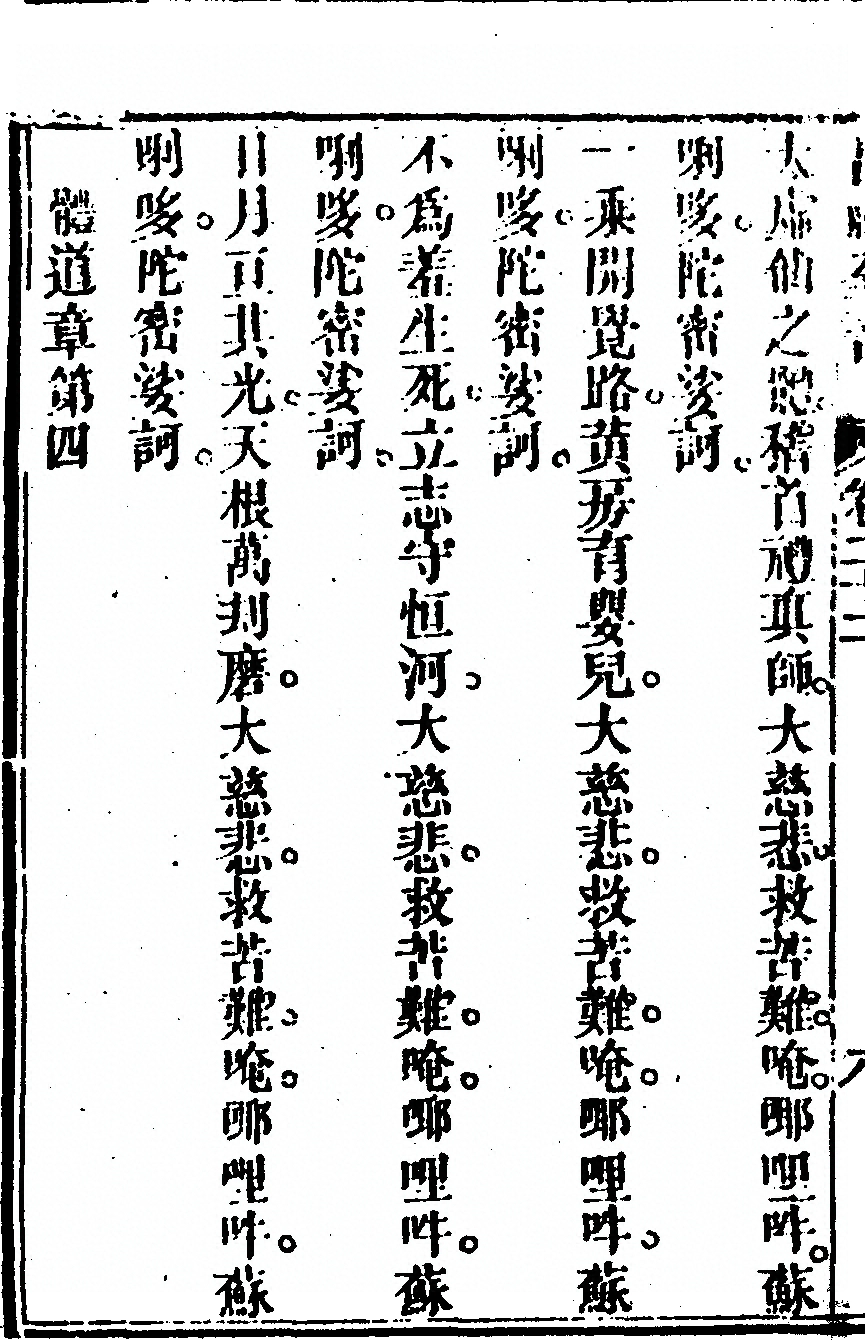 大虛仙之體。稽首禮眞師。大慈悲。救苦難。唵。哪哩吽。蘇
唎哆。陀密娑訶。
一乘開覺路。黃房育嬰兒。大慈悲。救苦難。唵。哪哩吽。蘇
唎哆。陀密娑訶。
不爲着生死。立志守恒河。大慈悲。救苦難。唵。哪哩吽。蘇
唎哆。陀密娑訶。
日月亘其光。天根萬刦磨。大慈悲。救苦難。唵。哪哩吽。蘇
唎哆。陀密娑訶。
體道章第四